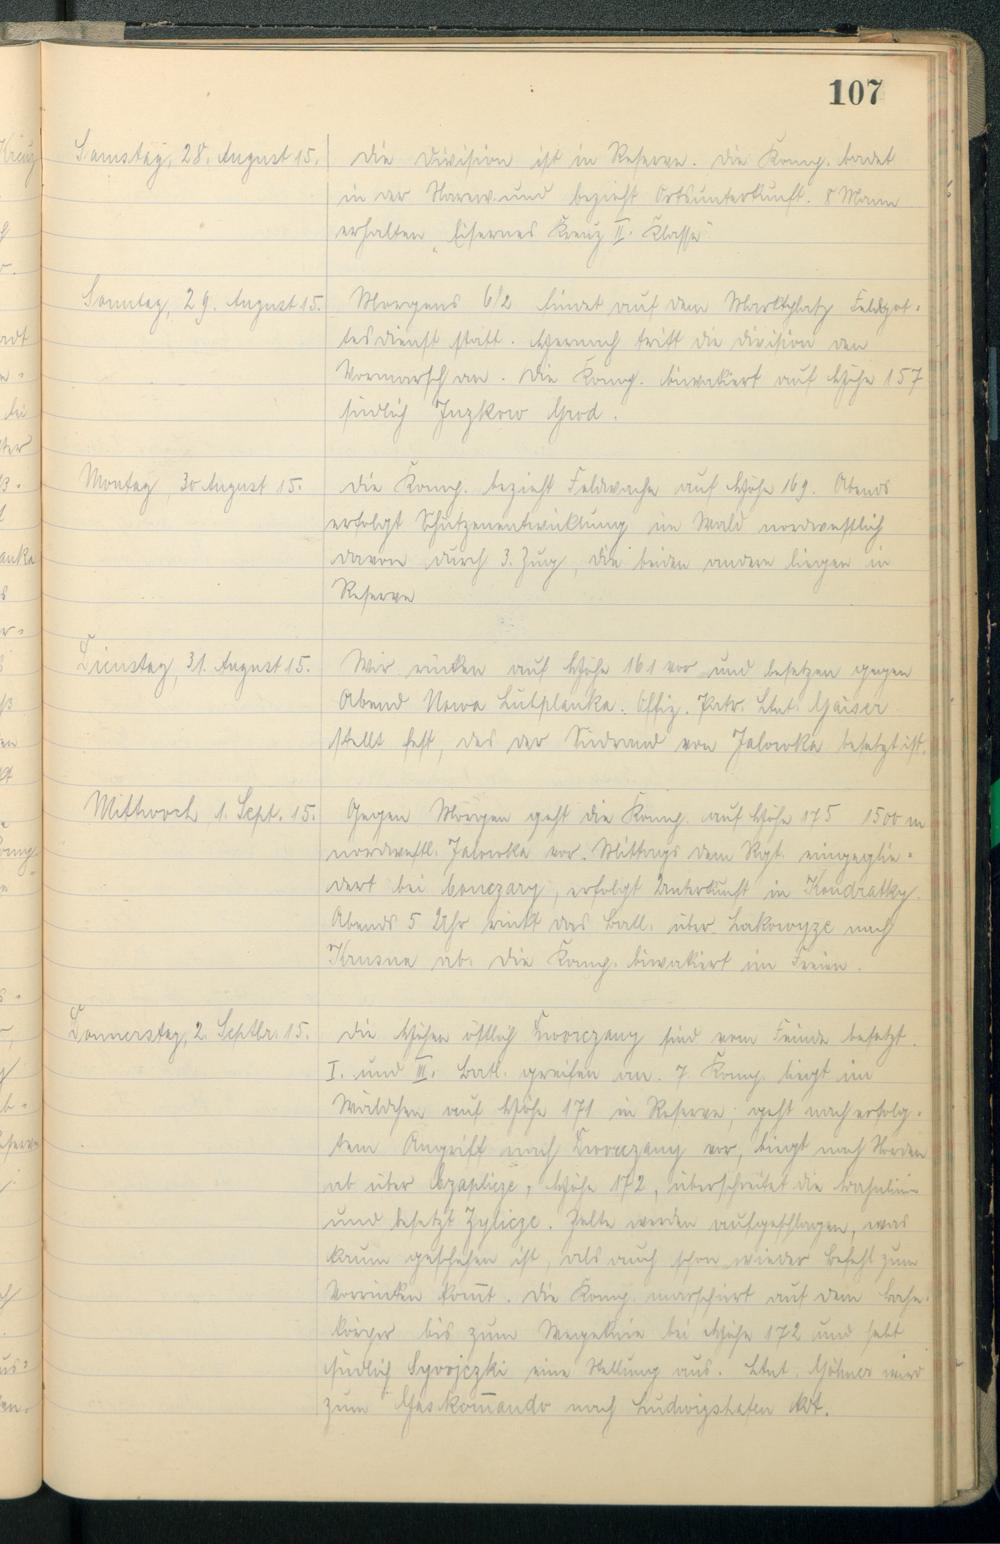 107
Samstag, 28. August 15. Die Division ist in Reserve. Die Komp. badet
in der Narew und bezieht Ortsunterkunft. 8 Mann
erhalten „Eisernes Kreuz II. Klasse"
Sonntag, 29. August 15. Morgens 6½ findet auf dem Marktplatz Feldgot-
tesdienst statt. Hernach tritt die Division den
Vormarsch an. Die Komp. biwakiert auf Höhe 157
südlich Grod.
Montag, 30 August 15. Die Komp. bezieht Feldwache auf Höhe 169. Abends
erfolgt Schützenentwicklung im Wald nordwestlich
davon durch 3. Zug, die beiden andern liegen in
Reserve
Dienstag, 31. August 15. Wir rücken auf Höhe 161 vor und besetzen gegen
Abend Nowa Lutplanka. Offiz. Patr. Ltnt. Gaiser
stellt fest, das der Südrand von Jalowka besetzt ist.
Mittwoch 1. Sept. 15. Gegen Morgen geht die Komp. auf Höhe 175 1500 m
nordwestl. Jalowka vor. Mittags dem Rgt. eingeglie-
dert bei Bonczary, erfolgt Unterkunft in Kondratky.
Abends 5 Uhr rückt das Batl. über nach
ab. Die Komp. biwakiert im Freien.
Donnerstag, 2. Septbr. 15. Die Höhen östlich Dworczany sind vom Feinde besetzt.
I. und III. Batl. greifen an. 7. Komp. liegt im
Wäldchen auf Höhe 171 in Reserve, geht nach erfolg-
tem Angriff nach Dworczany vor, biegt nach Norden
ab über Czaplicze, Höhe 172, überschreitet die Bahnlinie
und besetzt Zylicze. Zelte werden aufgeschlagen, was
kaum geschehen ist, als auch schon wieder Befehl zum
Vorrücken kom̅t. Die Komp. marschiert auf dem Bahn-
körper bis zum Wegeknie bei Höhe 172 und hebt
südlich eine Stellung aus. Ltnt. wird
zum Gaskom̅ando nach Ludwigshafen kdt.